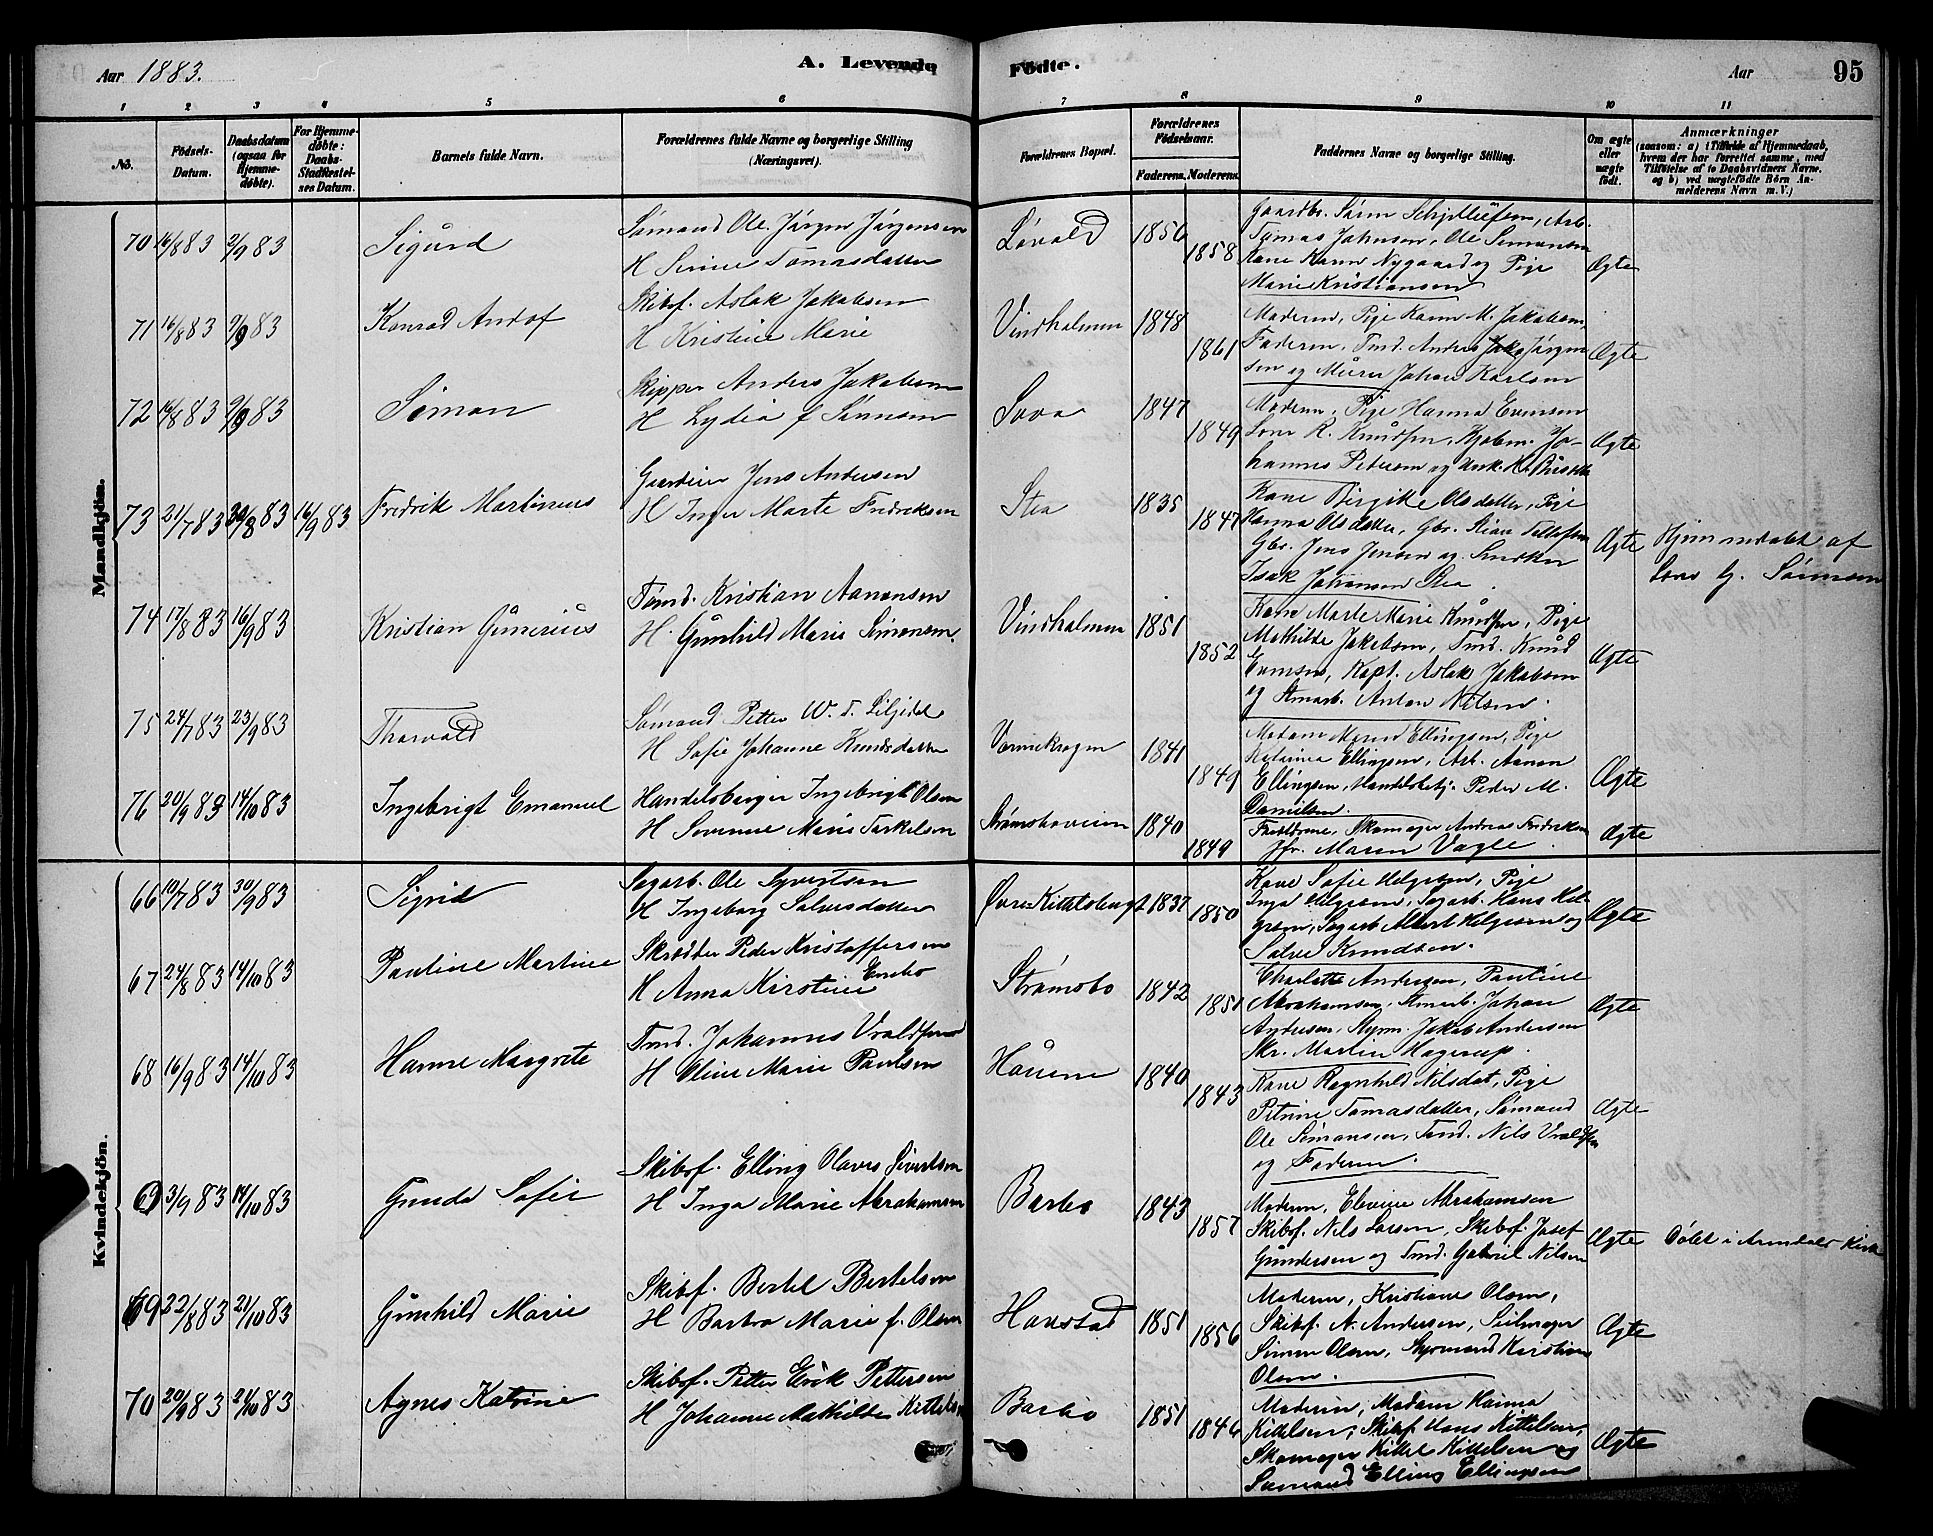 Aar 1883.
A. Levende Födte.
Aar
95
1 2 3 4 5 6 7 8 9 10 11
No.
Födsels-Datum.
Daabsdatum (ogsaa for Hjemme-döbte).
For Hjemme-döbte: Daabs-Stadfæstel-ses Datum.
Barnets fulde Navn.
Forældrenes fulde Navne og borgerlige Stilling (Næringsvei).
Forældrenes Bopæl.
Forældrenes Födselsaar.
Faderens. Moderens.
Faddernes Navne og borgerlige Stilling.
Om ægte eller uægte födt.
Anmærkninger
(saasom: a) i Tilfælde af Hjemmedaab, hvem der har forrettet samme, med Tilföielse af to Daabsvidners Navne, og b) ved uægtefödte Börn Anmelderens Navn m. V.)
Mandkjön.
70 16/8 83 2/9 83 Sigurd
Sømand Ole Jørgen Jørgensen
H Serine Tomasdatter
Løvold 1850 1858
Gaardbr. Søren
Tomas Johnsen, Ole Simonsen
Kone Karen Nygaard og Pige
Marie Kristiansen
Ægte
71 16/8 83 2/9 83 Konrad
Skibsf. Aslak Jakobsen
H Kristine Marie
Vindholmen 1848 1861
Moderen, Pige Karen M. Jakobsen,
Faderen, Tmd. Anders Jørgen
sen og Murer Johan Karlsen
Ægte
72 16/8 83 2/9 83 Simon
Skipper Anders Jakobsen
H Lydia f Sørensen
1847 1849
Moderen, Pige Hanna Evensen
Lars K. Knudsen, Kjøbm. Jo-
hannes Petersen og
Ægte
73 21/7 83 30/8 83 16/9 83 Fredrik Martinius
Gaardeier Jens Andersen
H Inger Marte Fredriksen
Stea 1835 1847
Kone Birgitte Olsdatter, Pige
Hanna Olsdatter, Gbr.
Gbr. Jens Jensen og Snedker
Isak Johansen Stea
Ægte
Hjemmedøbt af
Lars G. Sørensen
74 17/8 83 16/9 83 Kristian Gunerius
Tømd. Kristian Aanonsen
H. Gunhild Marie Simonsen.
Vindholmen 1851 1852
Kone Marte Marie Knudsen, Pige
Mathilde Jakobsen, Tmd. Knud
Evensen, Kapt. Aslak Jakobsen
og Anton Nilsen.
Ægte
75 24/7 83 23/9 83 Thorvald
Sømand Petter W. T. Liljedal
H Sofie Johanne Knudsdatter
1841 1849
Madam Maren Ellingsen, Pige
Katrine Ellingsen, Arb. Aanon
Ellingsen, Peder M.
Danielsen.
Ægte
76 20/9 83 14/10 83 Ingebrigt Emanuel
Handelsborger Ingebrigt Olsen
H Severine Marie Terkelsen
Strømsboveien 1840 1849
Forældrene, Skomager Andreas Fredriksen
Jfr. Maren Vagle.
Ægte
Kvindekjön.
66 10/7 83 30/9 83 Sigrid
Sagarb. Ole Syvertsen
H Ingeborg Salvesdatter
Øvre 1837 1850
Kone Sofie Helgesen, Pige
Inga Helgesen, Sagarb. Hans Hel-
gesen, Sagarb Albert Helgesen og
Salve Knudsen.
Ægte
67 24/8 83 14/10 83 Pauline Martine
Skrædder Peder Kristoffersen
H Anna Kirstine
Strømsbo 1842 1851
Charlotte Andersen, Pauline
Abrahamsen, Johan
Andersen, Jakob Andersen
Skr. Martin Hagerup.
Ægte
68 16/9 83 14/10 83 Hanne Margrete
Tmd. Johannes
H Oline Marie Paulsen
1840 1843
Kone Ragnhild Nilsdat, Pige
Petrine Tomasdatter, Sømand
Ole Simonsen, Tømd. Nils
og Faderen.
Ægte
69 3/9 83 14/10 83 Gunda Sofie
Skibsf. Elling Olaves Sivertsen
H Inga Marie Abrahamsen
Barbo 1843 1857
Moderen, Abrahamsen
Skibsf. Nils Larsen, Skibsf. Josef
Gundersen og Tmd. Gabriel Nilsen
Ægte
Døbt i Arendals Kirke
69 22/8 83 21/10 83 Gunhild Marie
Skibsf. Bertel Bertelsen
H Barbro Marie f. Olsen
Havstad 1851 1856
Moderen, Kristiane Olsen,
Skibsf. A. Andersen, Seilmager
Simon Olsen, Styrmand Kristian
Olsen.
Ægte
70 20/9 83 21/10 83 Agnes Katrine
Skibsf. Petter Erik Pettersen
H Johanne Mathilde Kittelsen
Barbo 1851 1846
Moderen, Madam Hanna
Kittelsen, Skibsf Hans Kittelsen,
Skomager Kittel Kittelsen og
Sømand Elling Ellingsen
Ægte